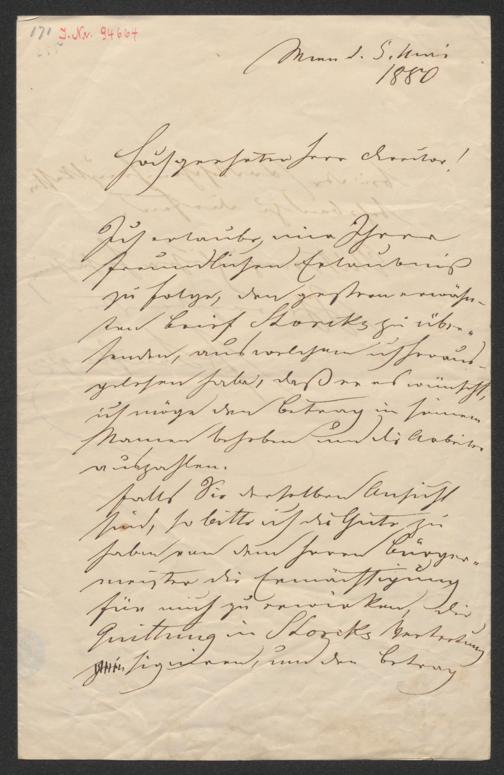 171
I.Nr. 94664
Wien d. 5. Mai
1880
Hochgeehrter Herr Director!
Ich erlaube, mir Ihrer
freundlichen Erlaubniß
zu folge, den gestern erwähn-
ten Brief Storcks zu über-
senden, aus welchem ich heraus-
gelesen habe, daß er es wünscht,
ich möge den Betrag in seinem
Namen beheben und die Arbeiter
auszahlen.
Falls Sie derselben Ansicht
sind, so bitte ich die Güte zu
haben von dem Herrn Bürger-
meister die Ermächtigung
für mich zu erwirken, die
Quittung in Storcks Vertretung
signieren, und den Betrag